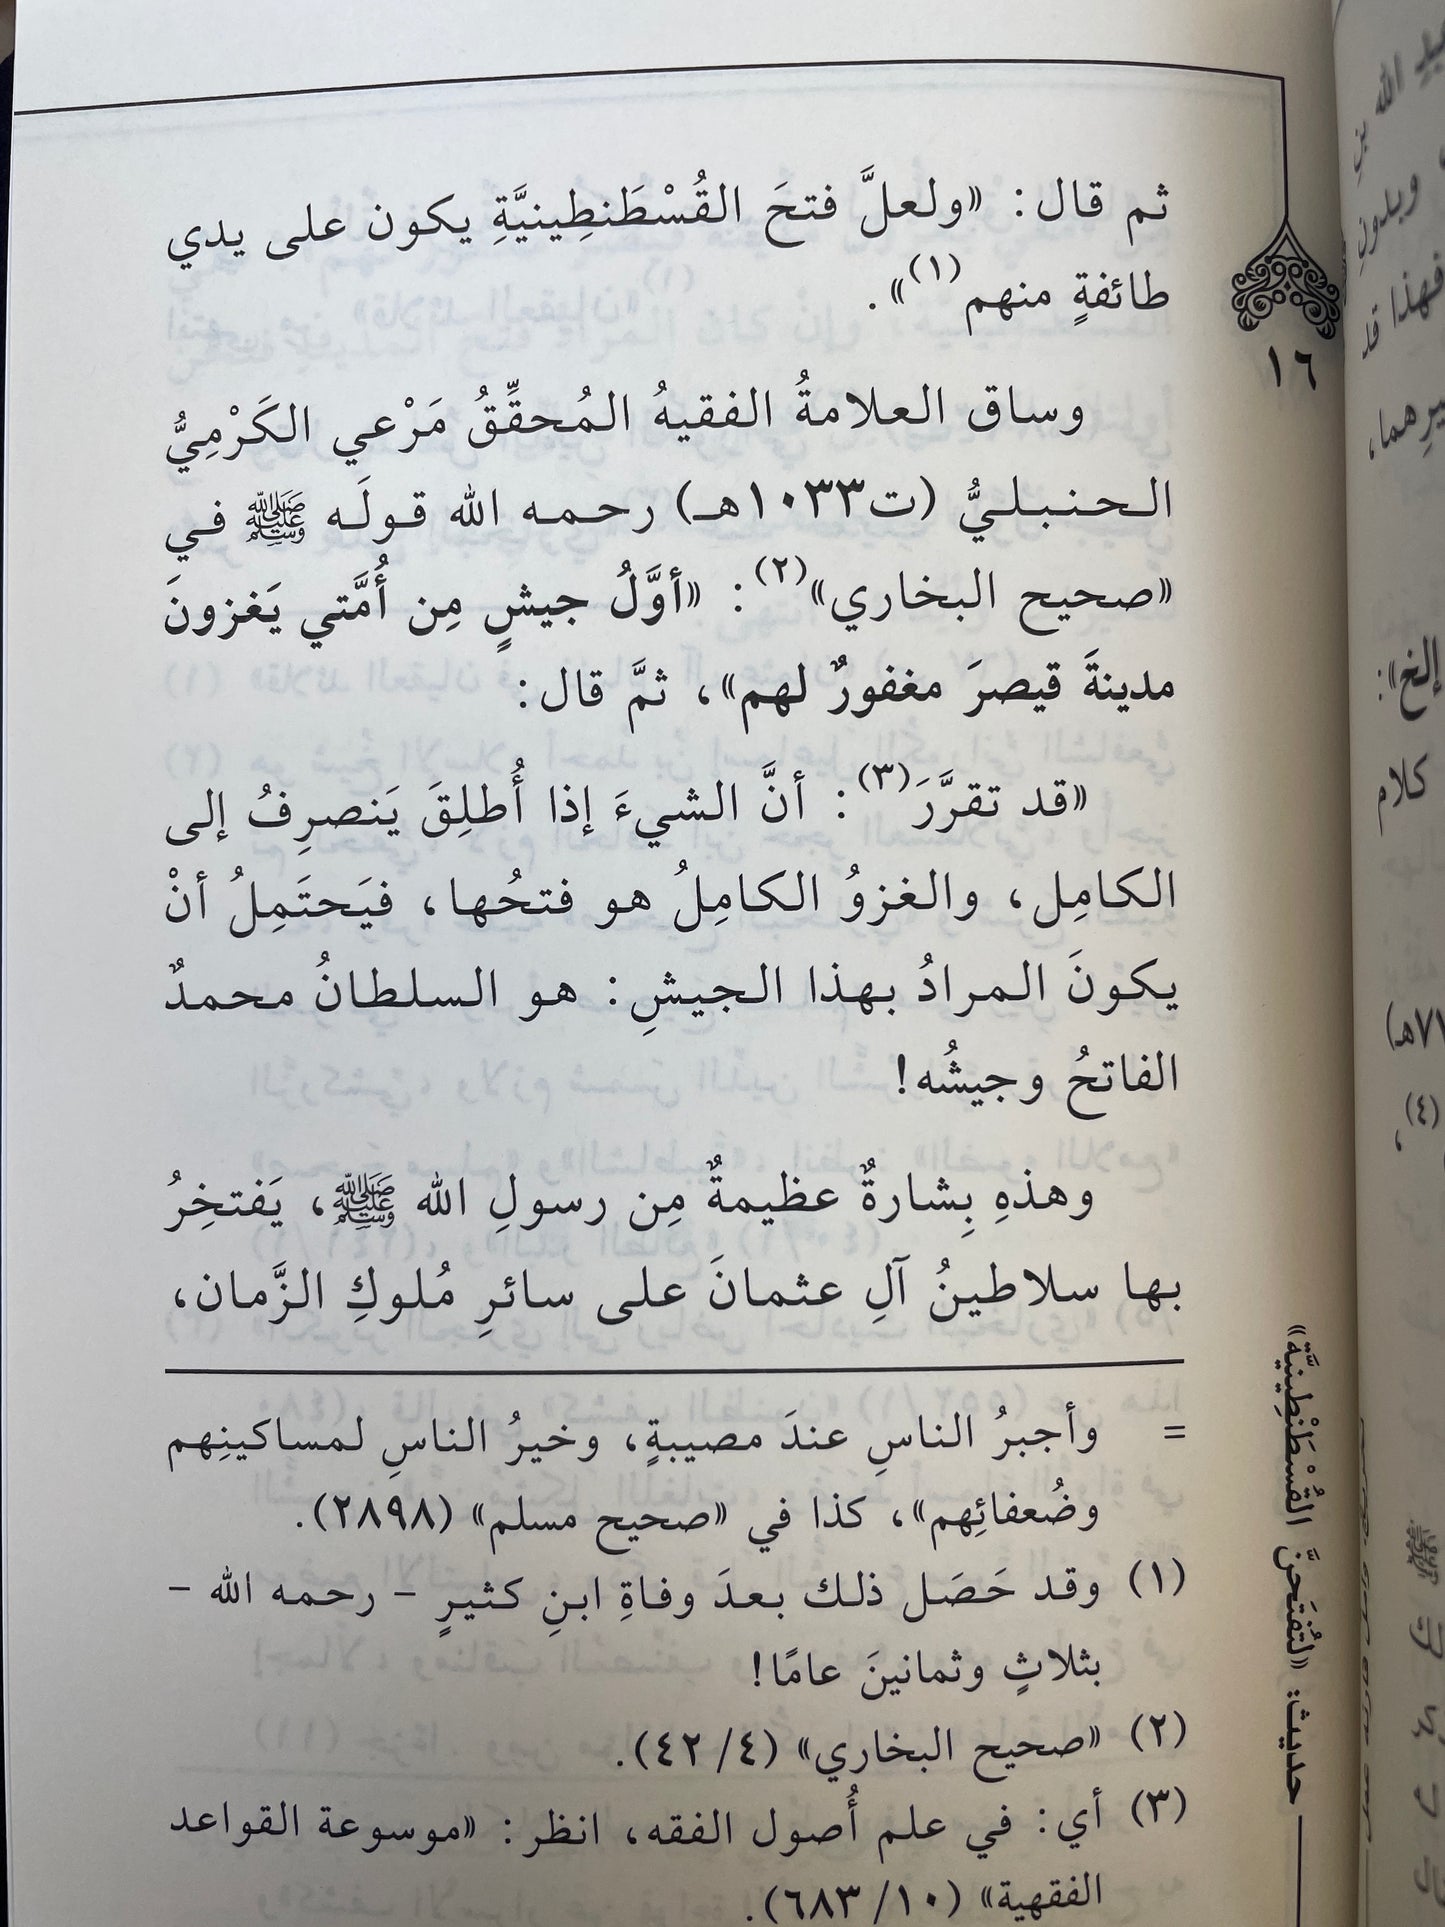 ثم قال: «ولعلَّ فتحَ القُسْطَنطِينيَّةِ يكون على يدي
طائفةٍ منهم(١)».
١٦
وساق العلامةُ الفقيهُ المُحقِّقُ مَرْعي الكَرْمِيُّ
الحنبليُّ (ت١٠٣٣هـ) رحمه الله قولَه ﷺ في
«صحيح البخاري»(٢): «أوَّلُ جيشٍ مِن أُمَّتي يَغزونَ
مدينةَ قيصرَ مغفورٌ لهم»، ثمَّ قال:
«قد تقرَّرَ(٣): أنَّ الشيءَ إذا أُطلِقَ يَنصرِفُ إلى
الكامِل، والغزوُ الكامِلُ هو فتحُها، فيَحتَمِلُ أنْ
يكونَ المرادُ بهذا الجيشِ: هو السلطانُ محمدٌ
الفاتحُ وجيشُه!
وهذهِ بِشارةٌ عظيمةٌ مِن رسولِ الله ﷺ، يَفتخِرُ
بها سلاطينُ آلِ عثمانَ على سائرِ مُلوكِ الزَّمان،
= وأجبرُ الناسِ عندَ مصيبةٍ، وخيرُ الناسِ لمساكينِهم
وضُعفائِهم»، كذا في «صحيح مسلم» (٢٨٩٨).
(١) وقد حَصَل ذلك بعدَ وفاةِ ابنِ كثيرٍ - رحمه الله -
بثلاثٍ وثمانينَ عامًا!
(٢) «صحيح البخاري» (٤/ ٤٢).
(٣) أي: في علم أُصول الفقه، انظر: «موسوعة القواعد
الفقهية» (١٠/ ٦٨٣).
حديث: «لتُفتَحنَّ القُسْطَنْطِينيَّة»
وبدونِ
فهذا قد
إلخ»:
كلام
(٤)،